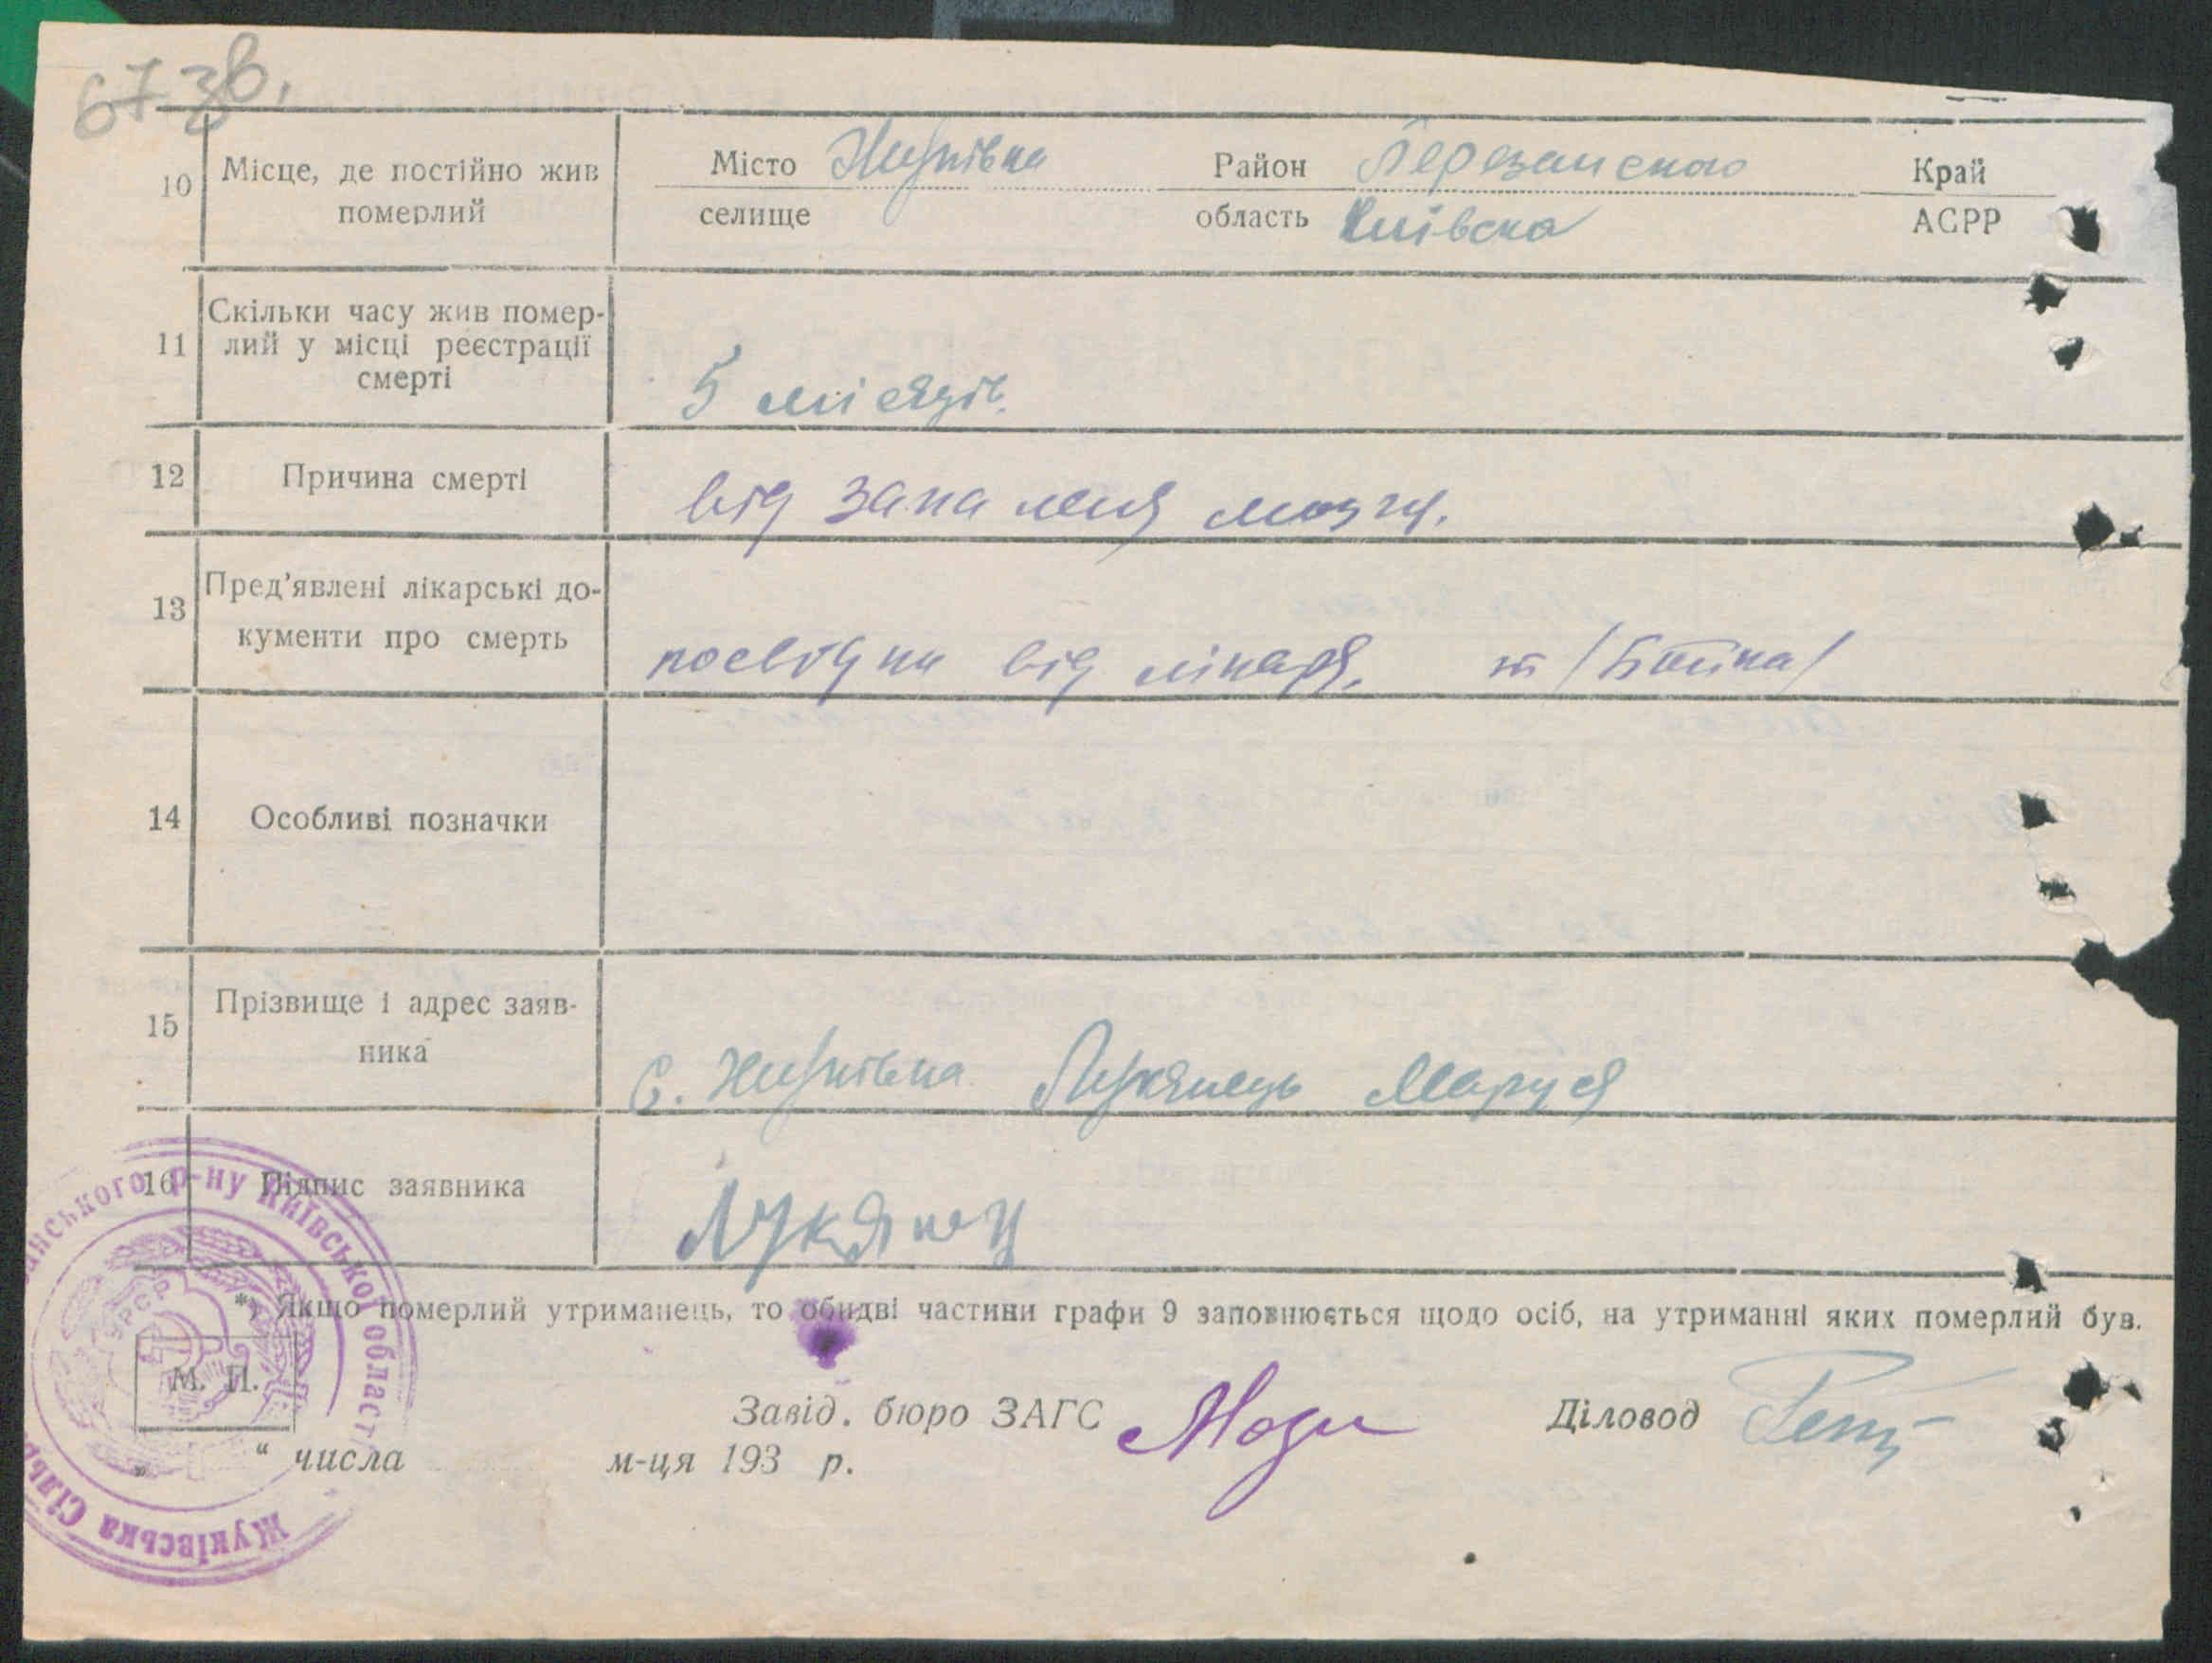 67 зв.
10 Місце, де постійно жив померлий
Місто Жуківка Район Березанського Край
селище область Київска АСРР
11 Скільки часу жив помер-
лий у місці реєстрації
смерті
5 місяців.
12 Причина смерті від запалення мозгу.
13 Пред'явлені лікарські до-
кументи про смерть
посвідки від лікаря. /Бойка/
14 Особливі позначки
15 Прізвище і адрес заяв-
ника
с. Жуківка Лукянець Маруся
16 Підпис заявника Лукянец
*) Якщо померлий утриманець, то обидві частини графи 9 заповнюється щодо осіб, на утриманні яких померлий був.
М. П.
Завід. бюро ЗАГС Діловод
„ “ числа м-ця 193 р.
анського р-ну Київської област
Жуківська Сіль
УРСР